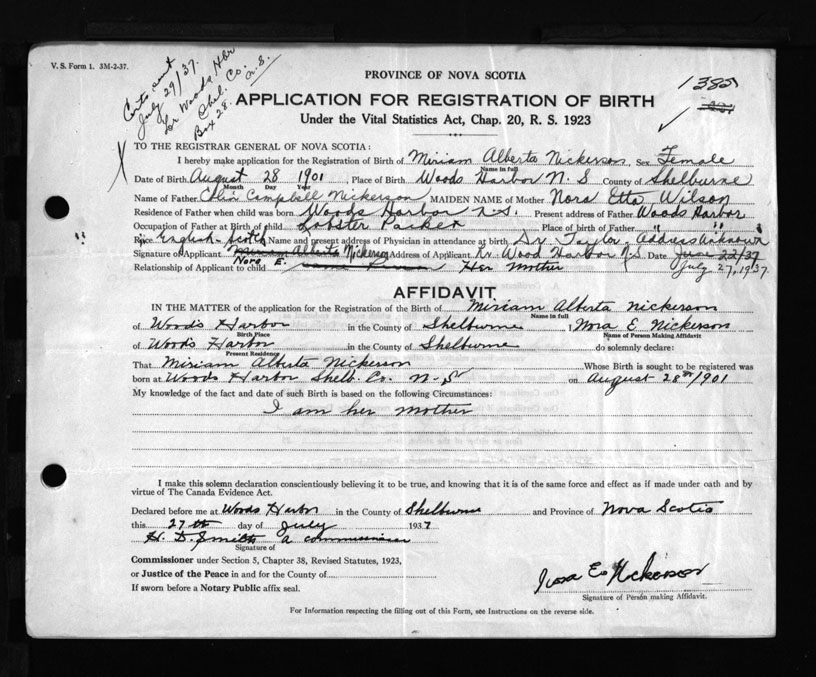 V. S. Form 1. 3M-2-37.
Certs. sent
July 29/37.
for Woods Hbr
Shel. Co. N. S.
Box 28.
1385
PROVINCE OF NOVA SCOTIA
APPLICATION FOR REGISTRATION OF BIRTH
Under the Vital Statistics Act, Chap. 20, R. S. 1923
TO THE REGISTRAR GENERAL OF NOVA SCOTIA:
I hereby make application for the Registration of Birth of Miriam Alberta Nickerson Sex Female
Name in full
Date of Birth August 28 1901 Place of Birth Woods Harbor N. S County of Shelburne
Month Day Year
Name of Father Colin Campbell Nickerson MAIDEN NAME of Mother Nora Etta Wilson
Residence of Father when child was born Woods Harbor N.S. Present address of Father Woods Harbor
Occupation of Father at Birth of child Lobster Packer Place of birth of Father " " "
Race English-Scotch Name and present address of Physician in attendance at birth Dr Taylor - Address unknown
Signature of Applicant Miriam Alberta Nickerson Address of Applicant Lr. Wood Harbor N.S. Date June 22/37
Nora E. July 27, 1937
Relationship of Applicant to child same Person Her Mother
AFFIDAVIT
IN THE MATTER of the application for the Registration of the Birth of Miriam Alberta Nickerson
Name in full
of Woods Harbor in the County of Shelburne I, Nora E Nickerson
Birth Place Name of Person Making Affidavit
of Woods Harbor in the County of Shelburne do solemnly declare:
Present Residence
That Miriam Alberta Nickerson Whose Birth is sought to be registered was
born at Woods Harbor Shelb. Co. N. S on August 28th 1901
My knowledge of the fact and date of such Birth is based on the following Circumstances:
I am her mother
I make this solemn declaration conscientiously believing it to be true, and knowing that it is of the same force and effect as if made under oath and by
virtue of The Canada Evidence Act.
Declared before me at Woods Harbor in the County of Shelburne and Province of Nova Scotia
this 27th day of July 1937
H. D. Smith a commissioner
Signature of
Commissioner under Section 5, Chapter 38, Revised Statutes, 1923,
or Justice of the Peace in and for the County of
If sworn before a Notary Public affix seal.
Nora E. Nickerson
Signature of Person making Affidavit.
For Information respecting the filling out of this Form, see Instructions on the reverse side.